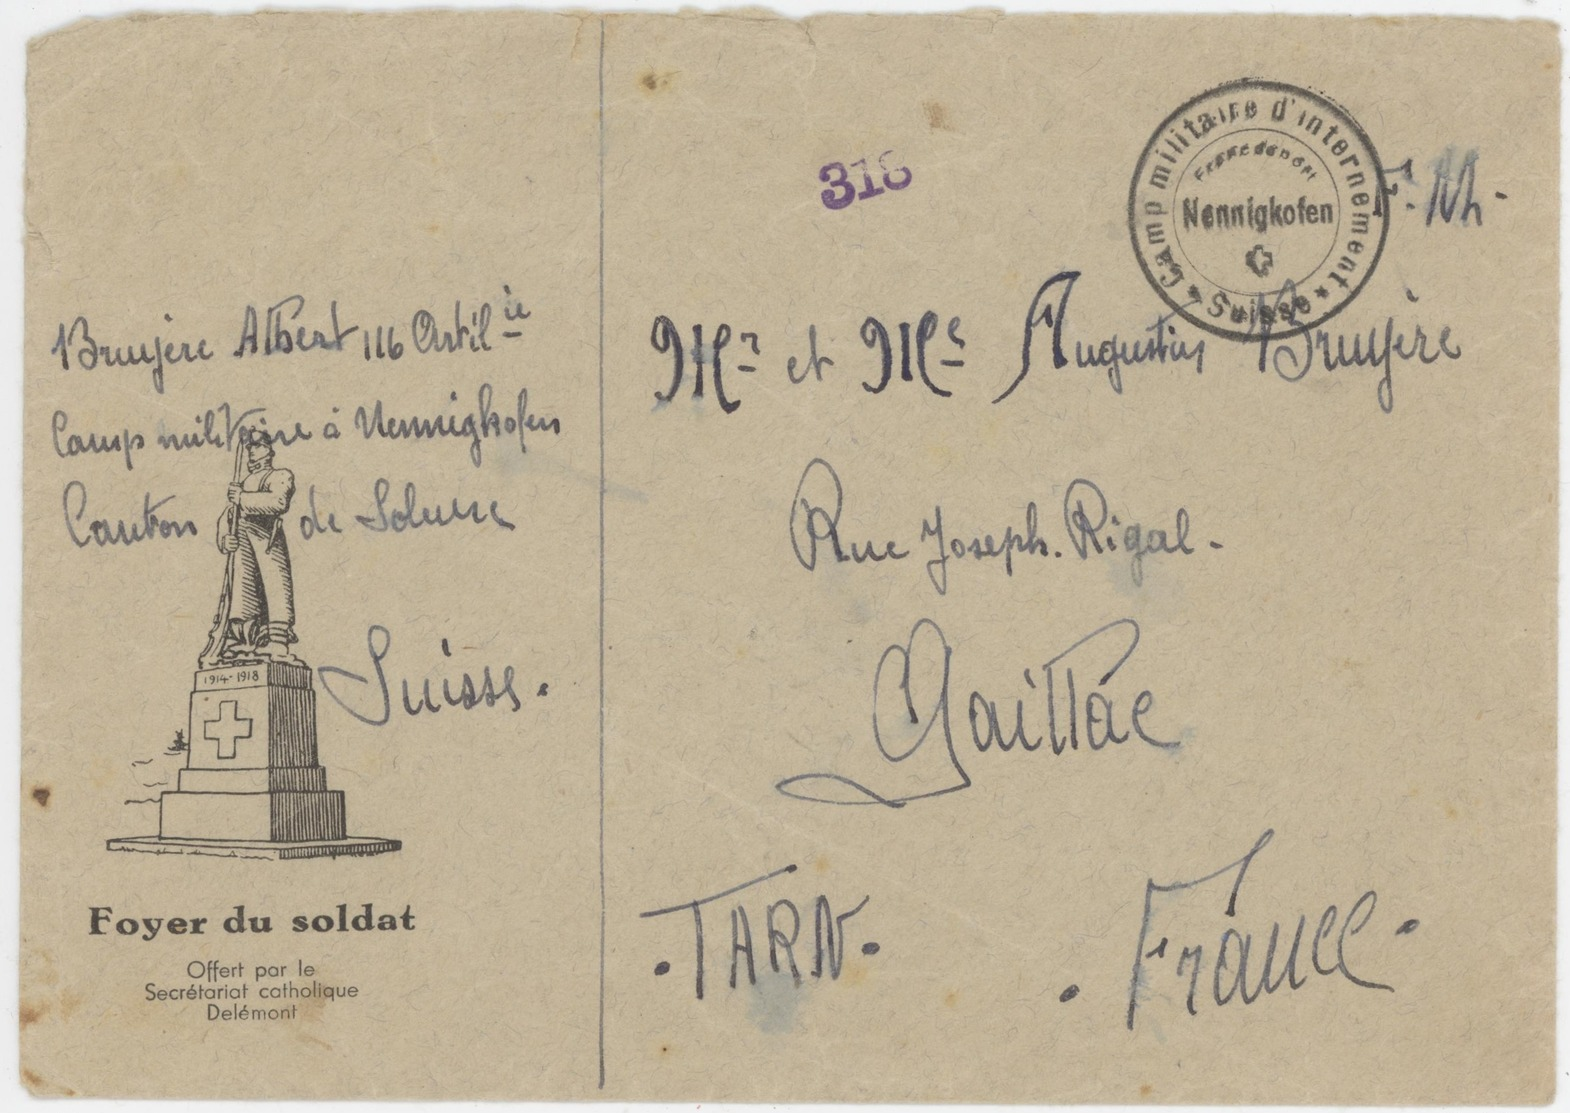 Bruyère Albert 116 Artil ie
Camp militaire à Nennigkofen
Canton de Soleure
Suisse.
1914-1918
Foyer du soldat
Offert par le
Secrétariat catholique
Delémont
318
Camp militaire d'internement
Nennigkofen
★ Suisse ★
F. M.
Mr et Me Augustin Bruyère
Rue Joseph. Rigal.
Gaillac
. TARN.
. France.